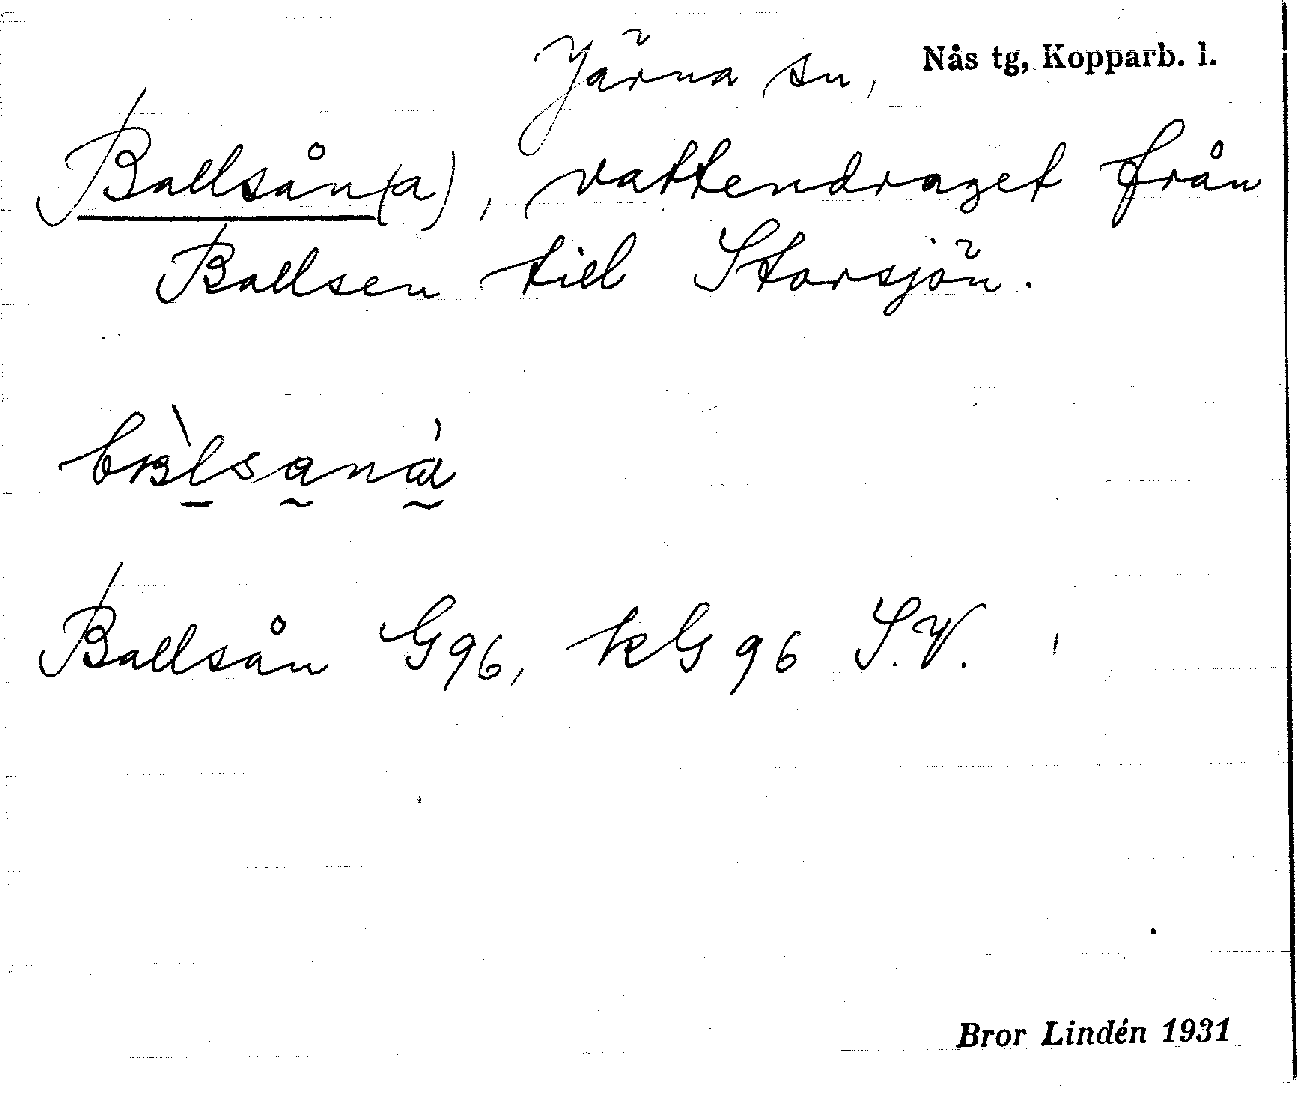 Järna sn, Nås tg, Kopparb. l.
Ballsån(a), vattendraget från
Ballsen till Storsjön.
Ballsån G96, kG96 S.V.
Bror Lindén 1931